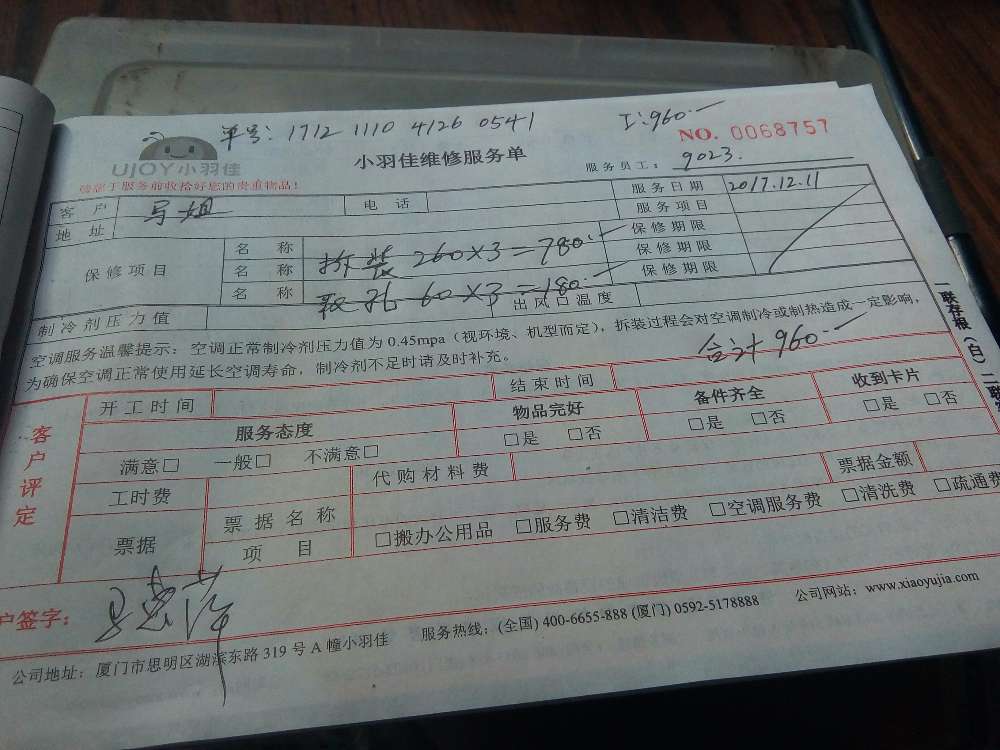 单号: 1712 1110 4126 0541
工:960.—
NO. 0068757
UJOY小羽佳
小羽佳维修服务单
服务员工: 9023.
请您于服务前收拾好您的贵重物品!
客户
电话
服务日期 2017.12.11
地址
服务项目
保修项目
名称 拆装 260×3=780.— 保修期限
名称 取孔 60×3=180.— 保修期限
名称
保修期限
制冷剂压力值
出风口温度
空调服务温馨提示:空调正常制冷剂压力值为0.45mpa(视环境、机型而定),拆装过程会对空调制冷或制热造成一定影响,
为确保空调正常使用延长空调寿命,制冷剂不足时请及时补充。
合计 960.—
一联存根(白)二联
客户评定
开工时间
结束时间
服务态度
物品完好
备件齐全
收到卡片
满意□ 一般□ 不满意□
□是 □否
□是 □否
□是 □否
工时费
代购材料费
票据金额
票据
票据名称
项目
□搬办公用品 □服务费 □清洁费 □空调服务费 □清洗费 □疏通费
户签字:
公司地址:厦门市思明区湖滨东路319号A幢小羽佳 服务热线:(全国) 400-6655-888 (厦门) 0592-5178888 公司网站:www.xiaoyujia.com